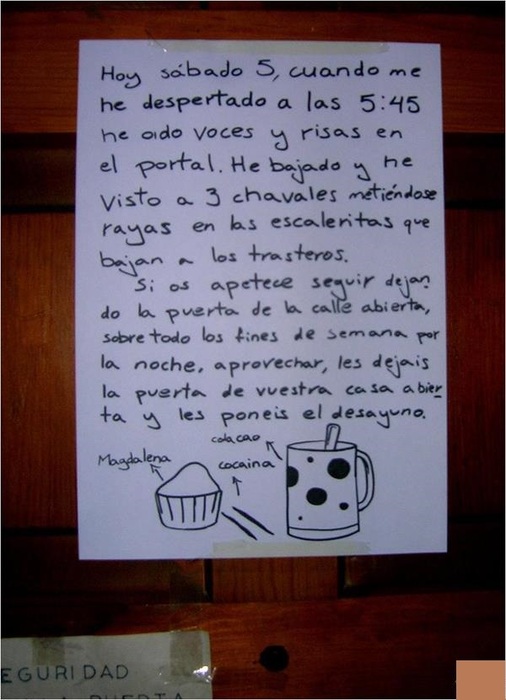 Hoy sábado 5, cuando me
he despertado a las 5:45
he oido voces y risas en
el portal. He bajado y he
visto a 3 chavales metiéndose
rayas en las escaleritas que
bajan a los trasteros.
Si os apetece seguir dejan
do la puerta de la calle abierta,
sobre todo los fines de semana por
la noche, aprovechar, les dejais
la puerta de vuestra casa abier
ta y les poneis el desayuno.
Magdalena
colacao
cocaina
EGURIDAD
PUERTA